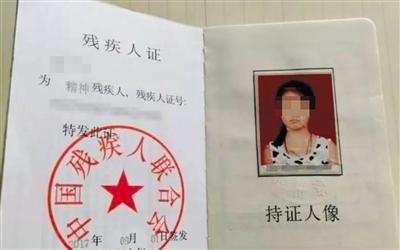 残疾人证
为
精神残疾人，残疾人证号：
特发此证
中国残疾人联合会
2017年 09月 01日签发
持证人像